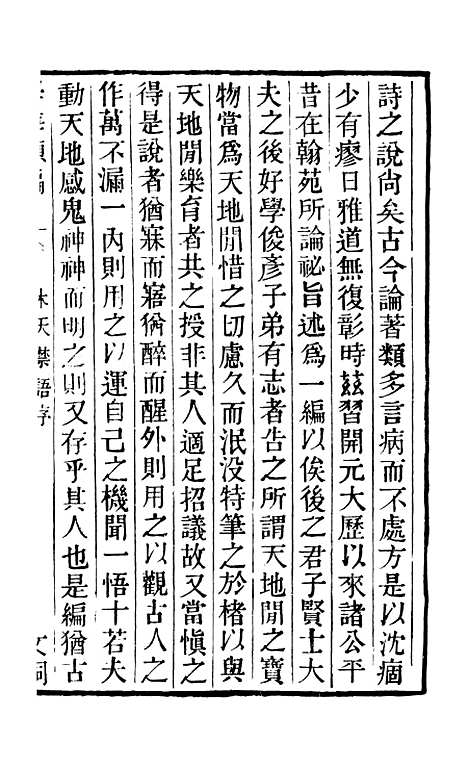 詩之說尚矣古今論著類多言病而不處方是以沈痼
少有瘳日雅道無復彰時兹習開元大歷以來諸公平
昔在翰苑所論祕旨述爲一編以俟後之君子賢士大
夫之後好學俊彥子弟有志者告之所謂天地閒之寶
物當爲天地閒惜之切慮久而泯没特筆之於楮以與
天地閒樂育者共之授非其人適足招議故又當愼之
得是說者猶寐而寤猶醉而醒外則用之以觀古人之
作萬不漏一內則用之以運自己之機聞一悟十若夫
動天地感鬼神神而明之則又存乎其人也是編猶古
類編 木天禁語序 文詞